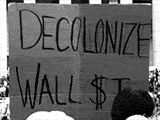 DECOLONIZE
WALL $T